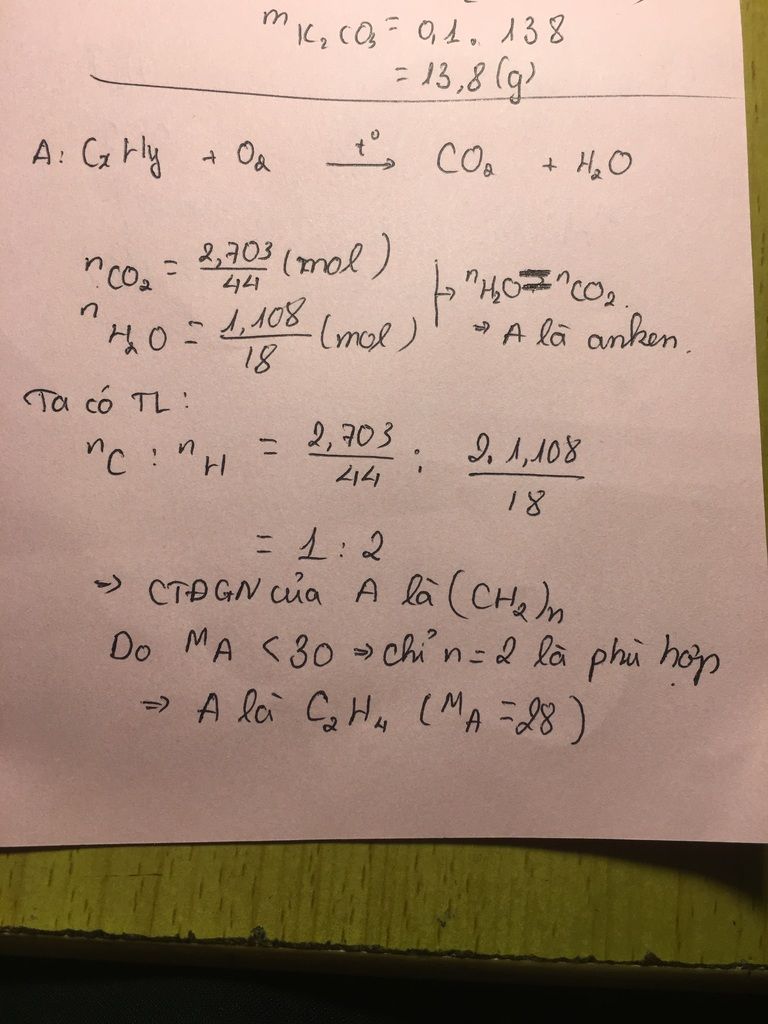 m K₂CO₃ = 0,1. 138
= 13,8 (g)
A: CxHy + O₂ —t°→ CO₂ + H₂O
nCO₂ = 2,703/44 (mol)
nH₂O = 1,108/18 (mol)
→ nH₂O = nCO₂.
⇒ A là anken.
Ta có TL:
nC : nH = 2,703/44 : 2.1,108/18
= 1 : 2
⇒ CTĐGN của A là (CH₂)n
Do MA < 30 ⇒ chỉ n = 2 là phù hợp
⇒ A là C₂H₄ (MA = 28)